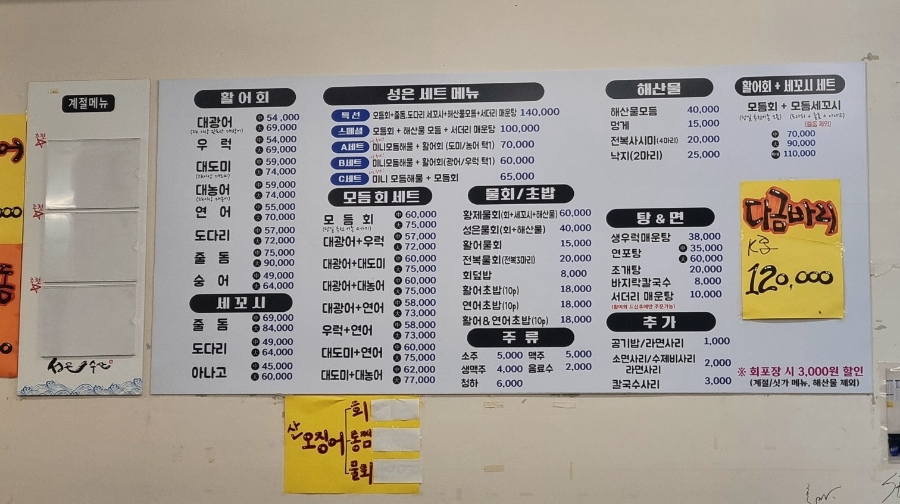 계절메뉴
추천
추천
추천
활어회
대광어 中 54,000
大 69,000
우럭 中 54,000
大 69,000
대도미 中 59,000
大 74,000
대농어 中 59,000
大 74,000
연어 中 55,000
大 70,000
도다리 中 57,000
大 72,000
줄돔 中 75,000
大 90,000
숭어 中 49,000
大 64,000
세꼬시
줄돔 中 69,000
大 84,000
도다리 中 49,000
大 64,000
아나고 中 45,000
大 60,000
성은 세트 메뉴
특선 모둠회+줄돔,도다리 세꼬시+해산물모둠+서더리 매운탕 140,000
스페셜 모둠회 + 해산물 모둠 + 서더리 매운탕 100,000
A세트 미니모둠해물 + 활어회 (도미/농어 택1) 70,000
B세트 미니모둠해물 + 활어회(광어/우럭 택1) 60,000
C세트 미니 모둠해물 + 모둠회 65,000
모듬회세트
모듬회 中 60,000
大 75,000
대광어+우럭 中 57,000
大 72,000
대광어+대도미 中 60,000
大 75,000
대광어+대농어 中 60,000
大 75,000
대광어+연어 中 58,000
大 73,000
우럭+연어 中 58,000
大 73,000
대도미+연어 中 60,000
大 75,000
대도미+대농어 中 62,000
大 77,000
물회/초밥
황제물회(회+세꼬시+해산물) 60,000
성은물회(회+해산물) 40,000
활어물회 15,000
전복물회(전복3마리) 20,000
회덮밥 8,000
활어초밥(10p) 18,000
연어초밥(10p) 18,000
활어&연어초밥(10p) 18,000
주류
소주 5,000 맥주 5,000
생맥주 4,000 음료수 2,000
청하 6,000
해산물
해산물모듬 40,000
멍게 15,000
전복사시미(4마리) 20,000
낙지(2마리) 25,000
탕&면
생우럭매운탕 38,000
연포탕 中 35,000
大 60,000
조개탕 20,000
바지락칼국수 8,000
서더리 매운탕 10,000
추가
공기밥/라면사리 1,000
소면사리/수제비사리
라면사리 2,000
칼국수사리 3,000
활어회+세꼬시 세트
모듬회 + 모듬세꼬시
(줄돔 제외)
中 70,000
大 90,000
110,000
다금바리
KG
120,000
※ 회포장 시 3,000원 할인
(계절/싯가 메뉴, 해산물 제외)
산오징어
회
통찜
물회